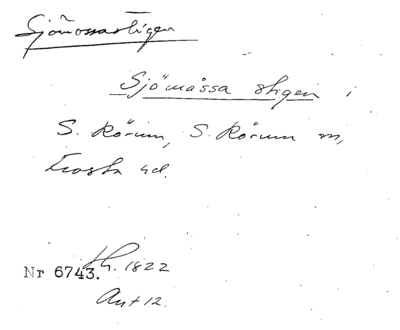 Sjömossastigen
Sjömåssa stigen i
S. Rörum, S. Rörum sn,
Frosta hd.
Nr 6743. th. 1822
Ant 12.